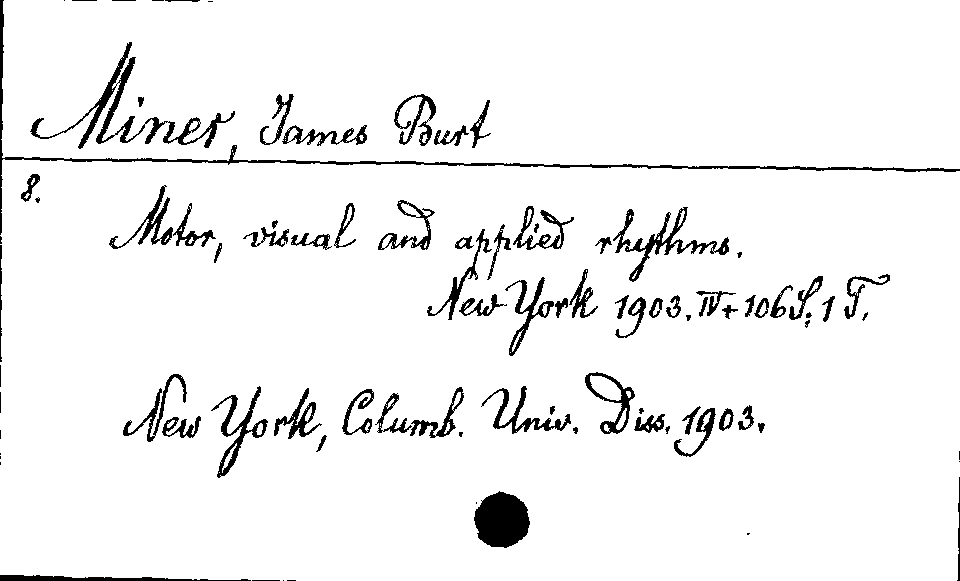 Miner, James Burt
8.
Motor, visual and applied rhythms.
New York 1903. IV+106 S. 1 T.
New York, Columb. Univ. Diss. 1903.